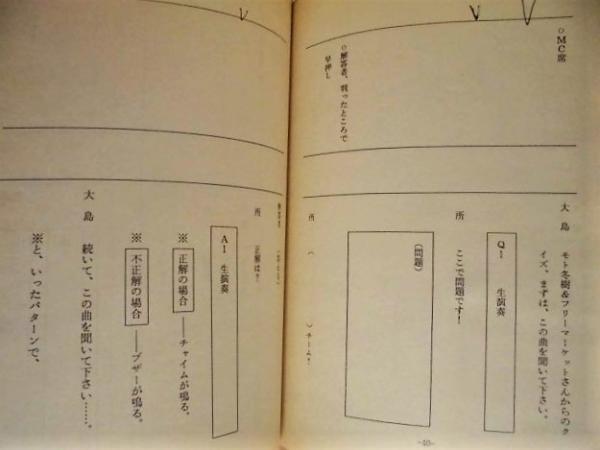 ○MC席
○解答者、判ったところで
早押し
大島　モト冬樹&フリーマーケットさんからのク
イズ、まずは、この曲を聞いて下さい。
Q1　生演奏
所　ここで問題です!
(問題)
所　(　　　)チーム!
-40-
所　正解は?
A1　生演奏
※正解の場合――チャイムが鳴る。
※不正解の場合――ブザーが鳴る。
大島　続いて、この曲を聞いて下さい……。
※と、いったパターンで、